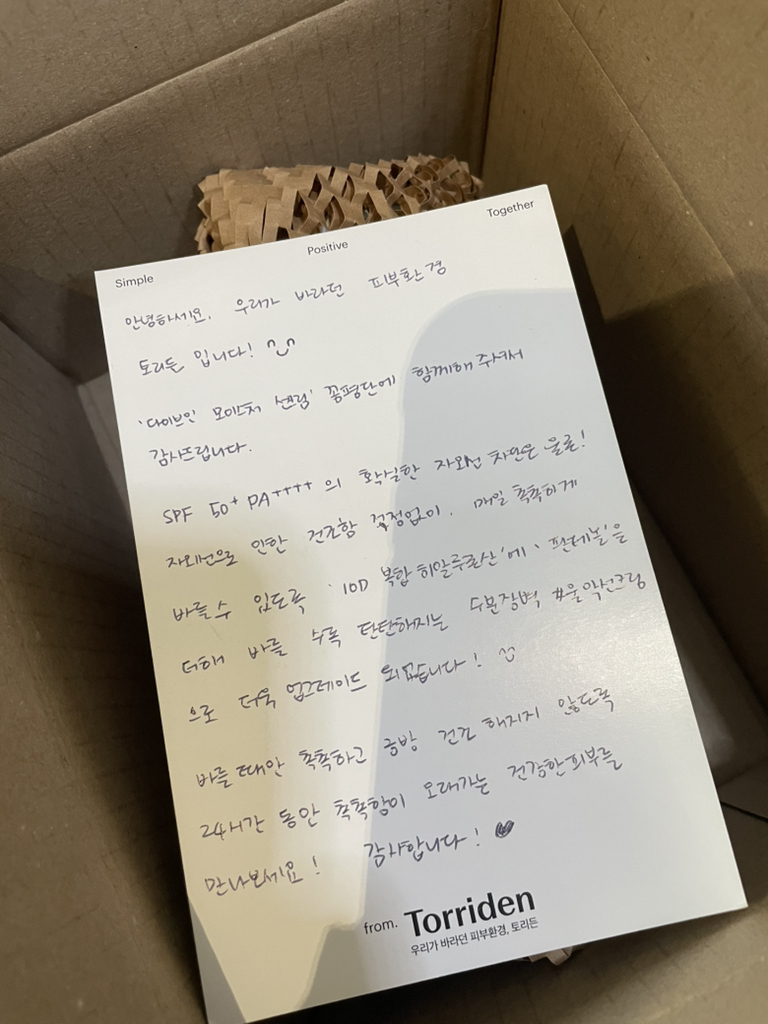 Simple Positive Together
안녕하세요. 우리가 바라던 피부환경
토리든 입니다!
'다이브인 모이스처 선크림' 꼼평단에 함께해주셔서
감사드립니다.
SPF 50+ PA++++ 의 확실한 자외선 차단은 물론!
자외선으로 인한 건조함 걱정없이. 매일 촉촉하게
바를 수 있도록 '10D 복합 히알루론산'에 '판테놀'을
더해 바를 수록 탄탄해지는 수분장벽 #물막선크림
으로 더욱 업그레이드 되었습니다!
바를 때만 촉촉하고 금방 건조 해지지 않도록
24시간 동안 촉촉함이 오래가는 건강한 피부를
만나보세요! 감사합니다!
from. Torriden
우리가 바라던 피부환경, 토리든